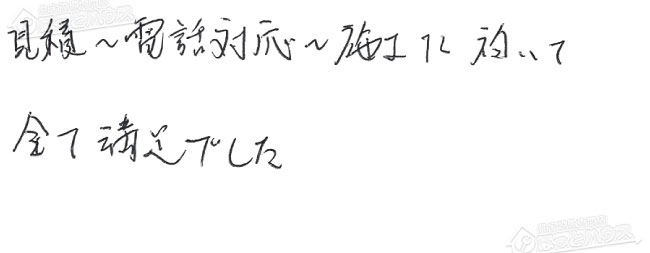 見積～電話対応～施工に於いて
全て満足でした